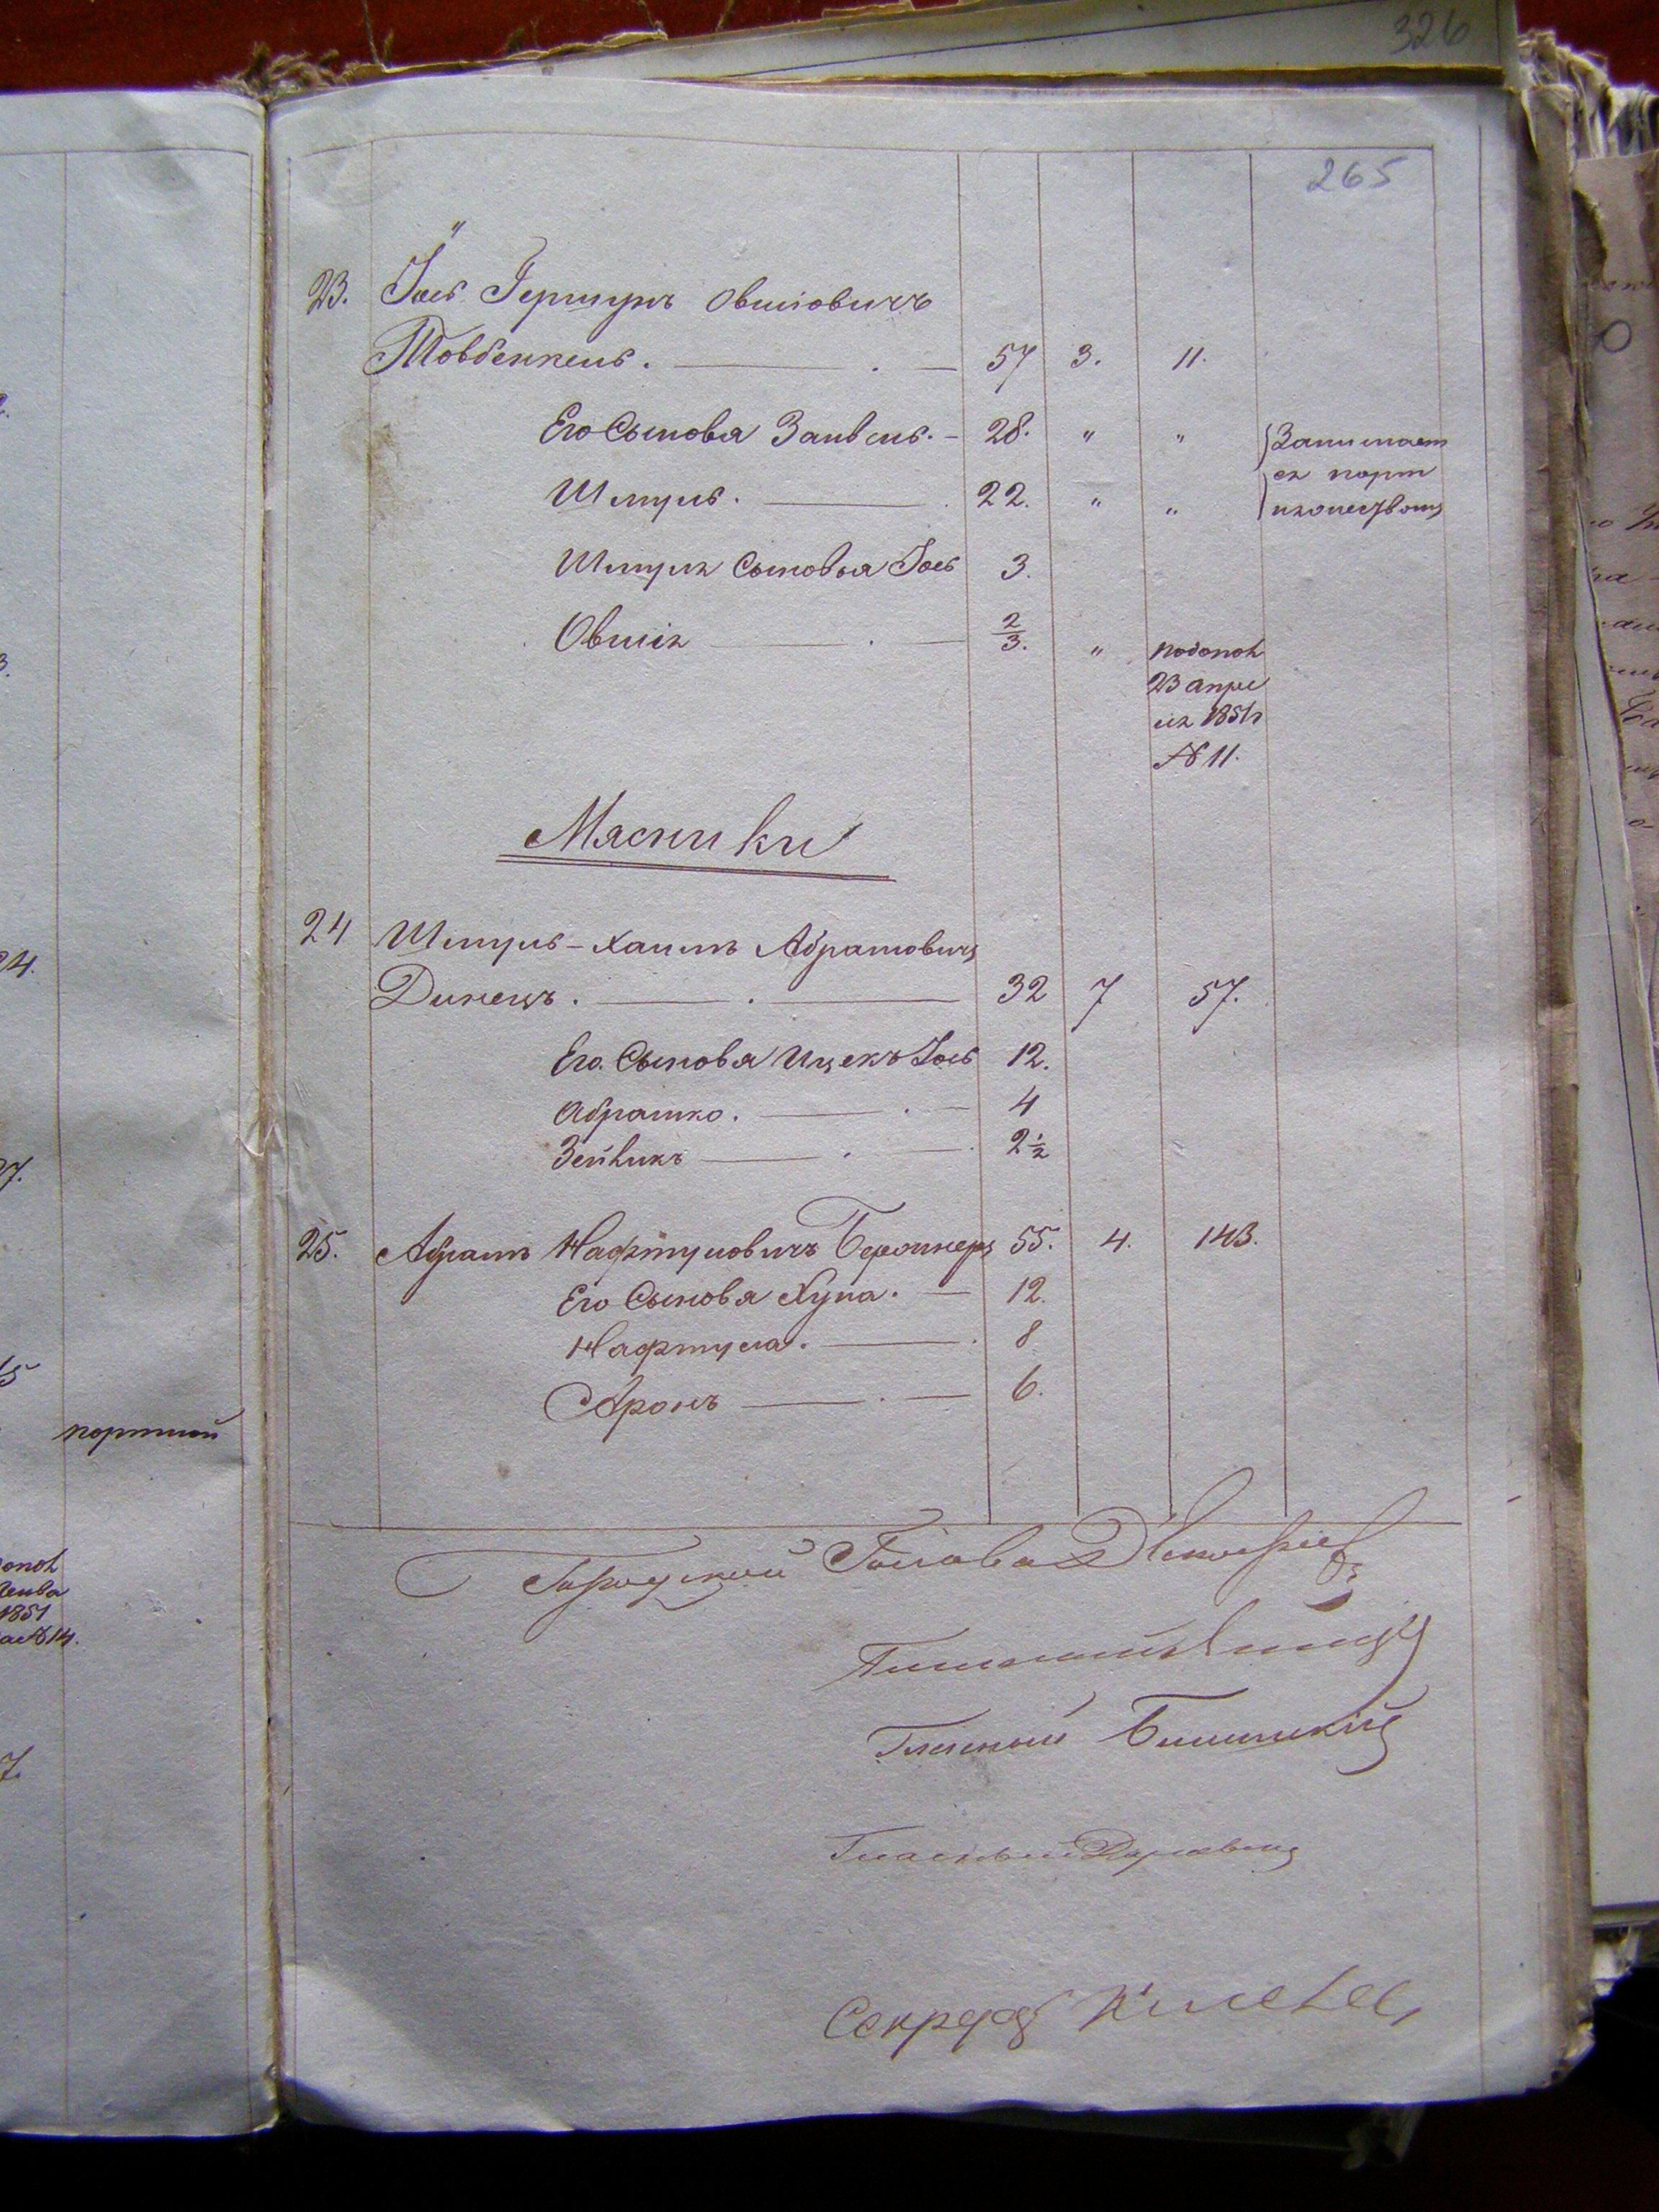 326
265
23. Іось Гершунъ Овшіовичъ
Товбенкель. 57 3. 11.
Его Сыновя Занвель. 28. " " Занимает
ся порт
няжеством
Шмуль. 22. " "
Шмуля Сыновья Іось 3.
Овшія 2/3. " подополн
23 апре
ля 1851 г
№ 11.
Мясники
24 Шмуль-Хаимъ Абрамовичъ
Динецъ. 32 7 57.
Его Сыновя Ицекъ Іось 12.
Абрашко. 4
Зейликъ 2 1/2
25. Абрамъ Нафтуловичъ 55. 4. 143.
Его Сыновя Хуна. 12.
Нафтула. 8
Аронъ 6.
Городской Голова
Гласный
Гласный
Секретарь
24.
27.
15
портной
1851
№ 14.
7.